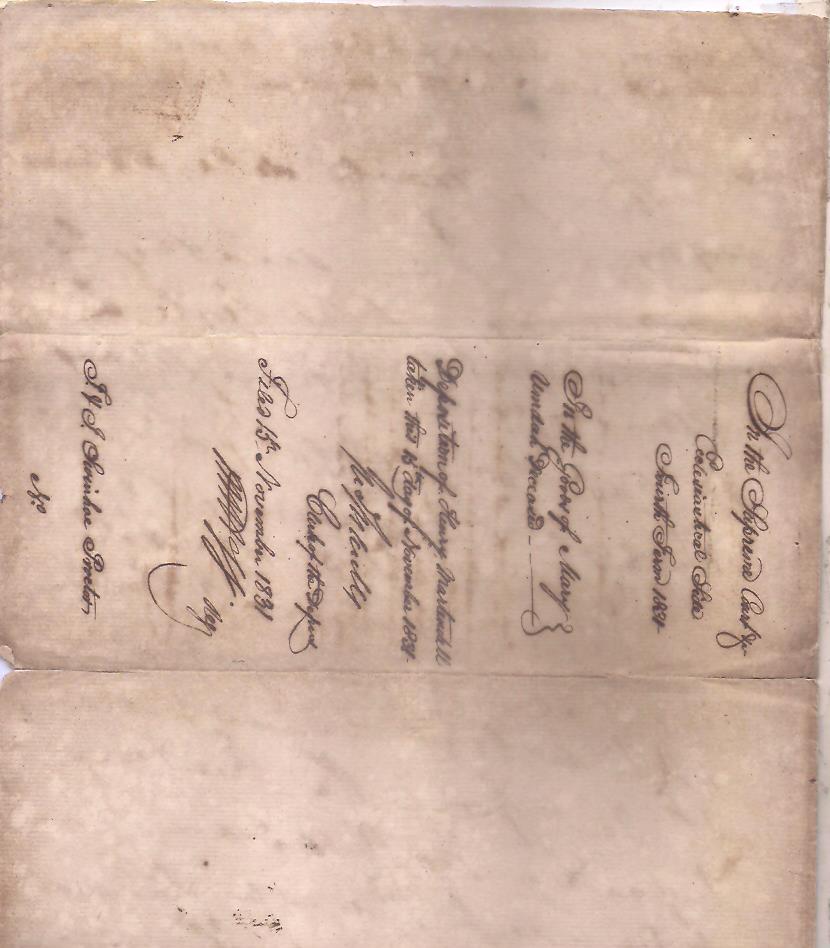 In the Supreme Court &c
Ecclesiastical Side
Fourth Term 1831
In the Goods of Mary
Deceased
Deposition of Henry Martindell
taken this 15th day of November 1831
Clerk of the Depos
Filed 15th November 1831
Reg
T. & J. Swinhoe Proctor,
No.